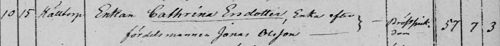 10 15 Hålltorp Enkan Cathrina Ersdotter, Enka efter } Bröstsjuk- 57 7 3
fördelsmannen Jonas Olsson — dom